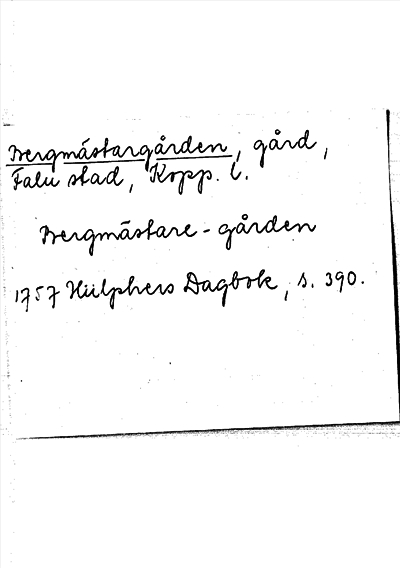 Bergmästargården, gård,
Falu stad, Kopp. l.
Bergmästare-gården
1757 Hülphers Dagbok, s. 390.